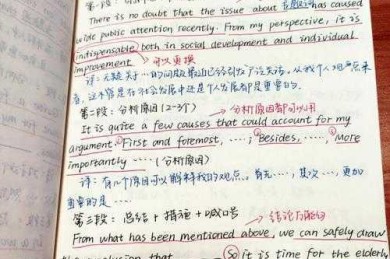 There is no doubt that the issue about 主题词 has caused
wide public attention recently. From my perspective, it is
indispensable both in social development and individual
improvement → 可以更换
译:无疑关于一的问题最近已经引起广泛关注。从我个人观点来
看,这不管是在社会发展中还是个人发展都是重要的。
第二段:分析原因(2-3个) → 分析原因都可以用
It is quite a few causes that could account for my
argument. First and foremost, ····; Besides, ····, More
importantly ····(分析原因)
译:有几个原因可以解释我的观点。首先…,其次…,更加
重要的是 ····
第三段:总结+措施+喊口号 →
From what has been mentioned above, we can safely draw
that
So it is time for the elderly